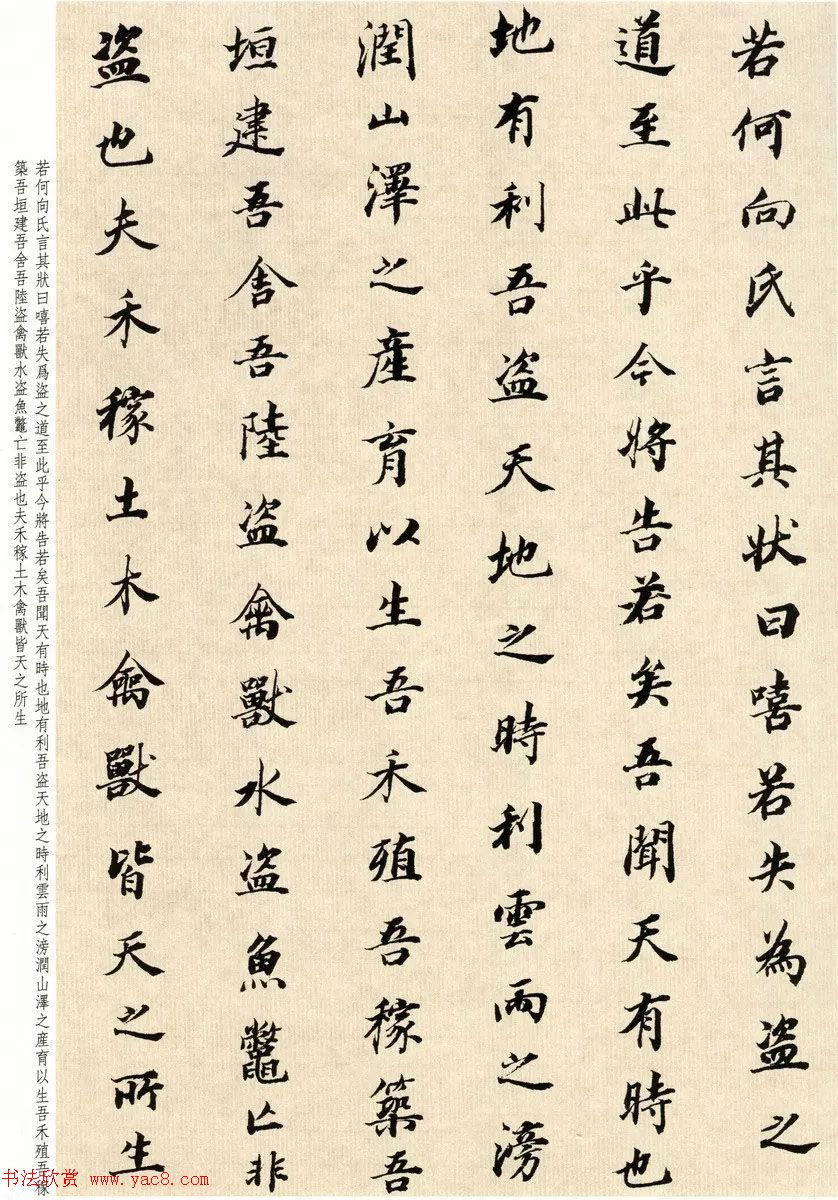 若何向氏言其狀曰嘻若失為盗之
道至此乎今將告若矣吾聞天有時也
地有利吾盗天地之時利雲雨之滂
潤山澤之產育以生吾禾殖吾稼築吾
垣建吾舍吾陸盗禽獸水盗魚鼈亡非
盗也夫禾稼土木禽獸皆天之所生
若何向氏言其狀曰嘻若失爲盜之道至此乎今將告若矣吾聞天有時也地有利吾盜天地之時利雲雨之滂潤山澤之産育以生吾禾殖吾稼
築吾垣建吾舍吾陸盜禽獸水盜魚鼈亡非盜也夫禾稼土木禽獸皆天之所生
书法欣赏 www.yac8.com